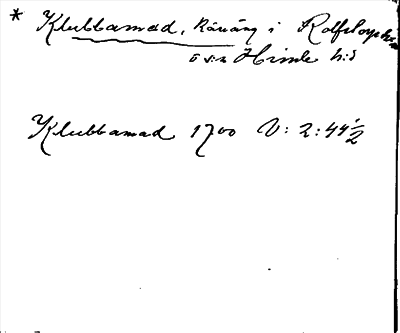 * Klubbamad, känäng i Rolfstorps
ö sv. Himle h:d
Klubbamad 1700 V: 2: 44 1/2